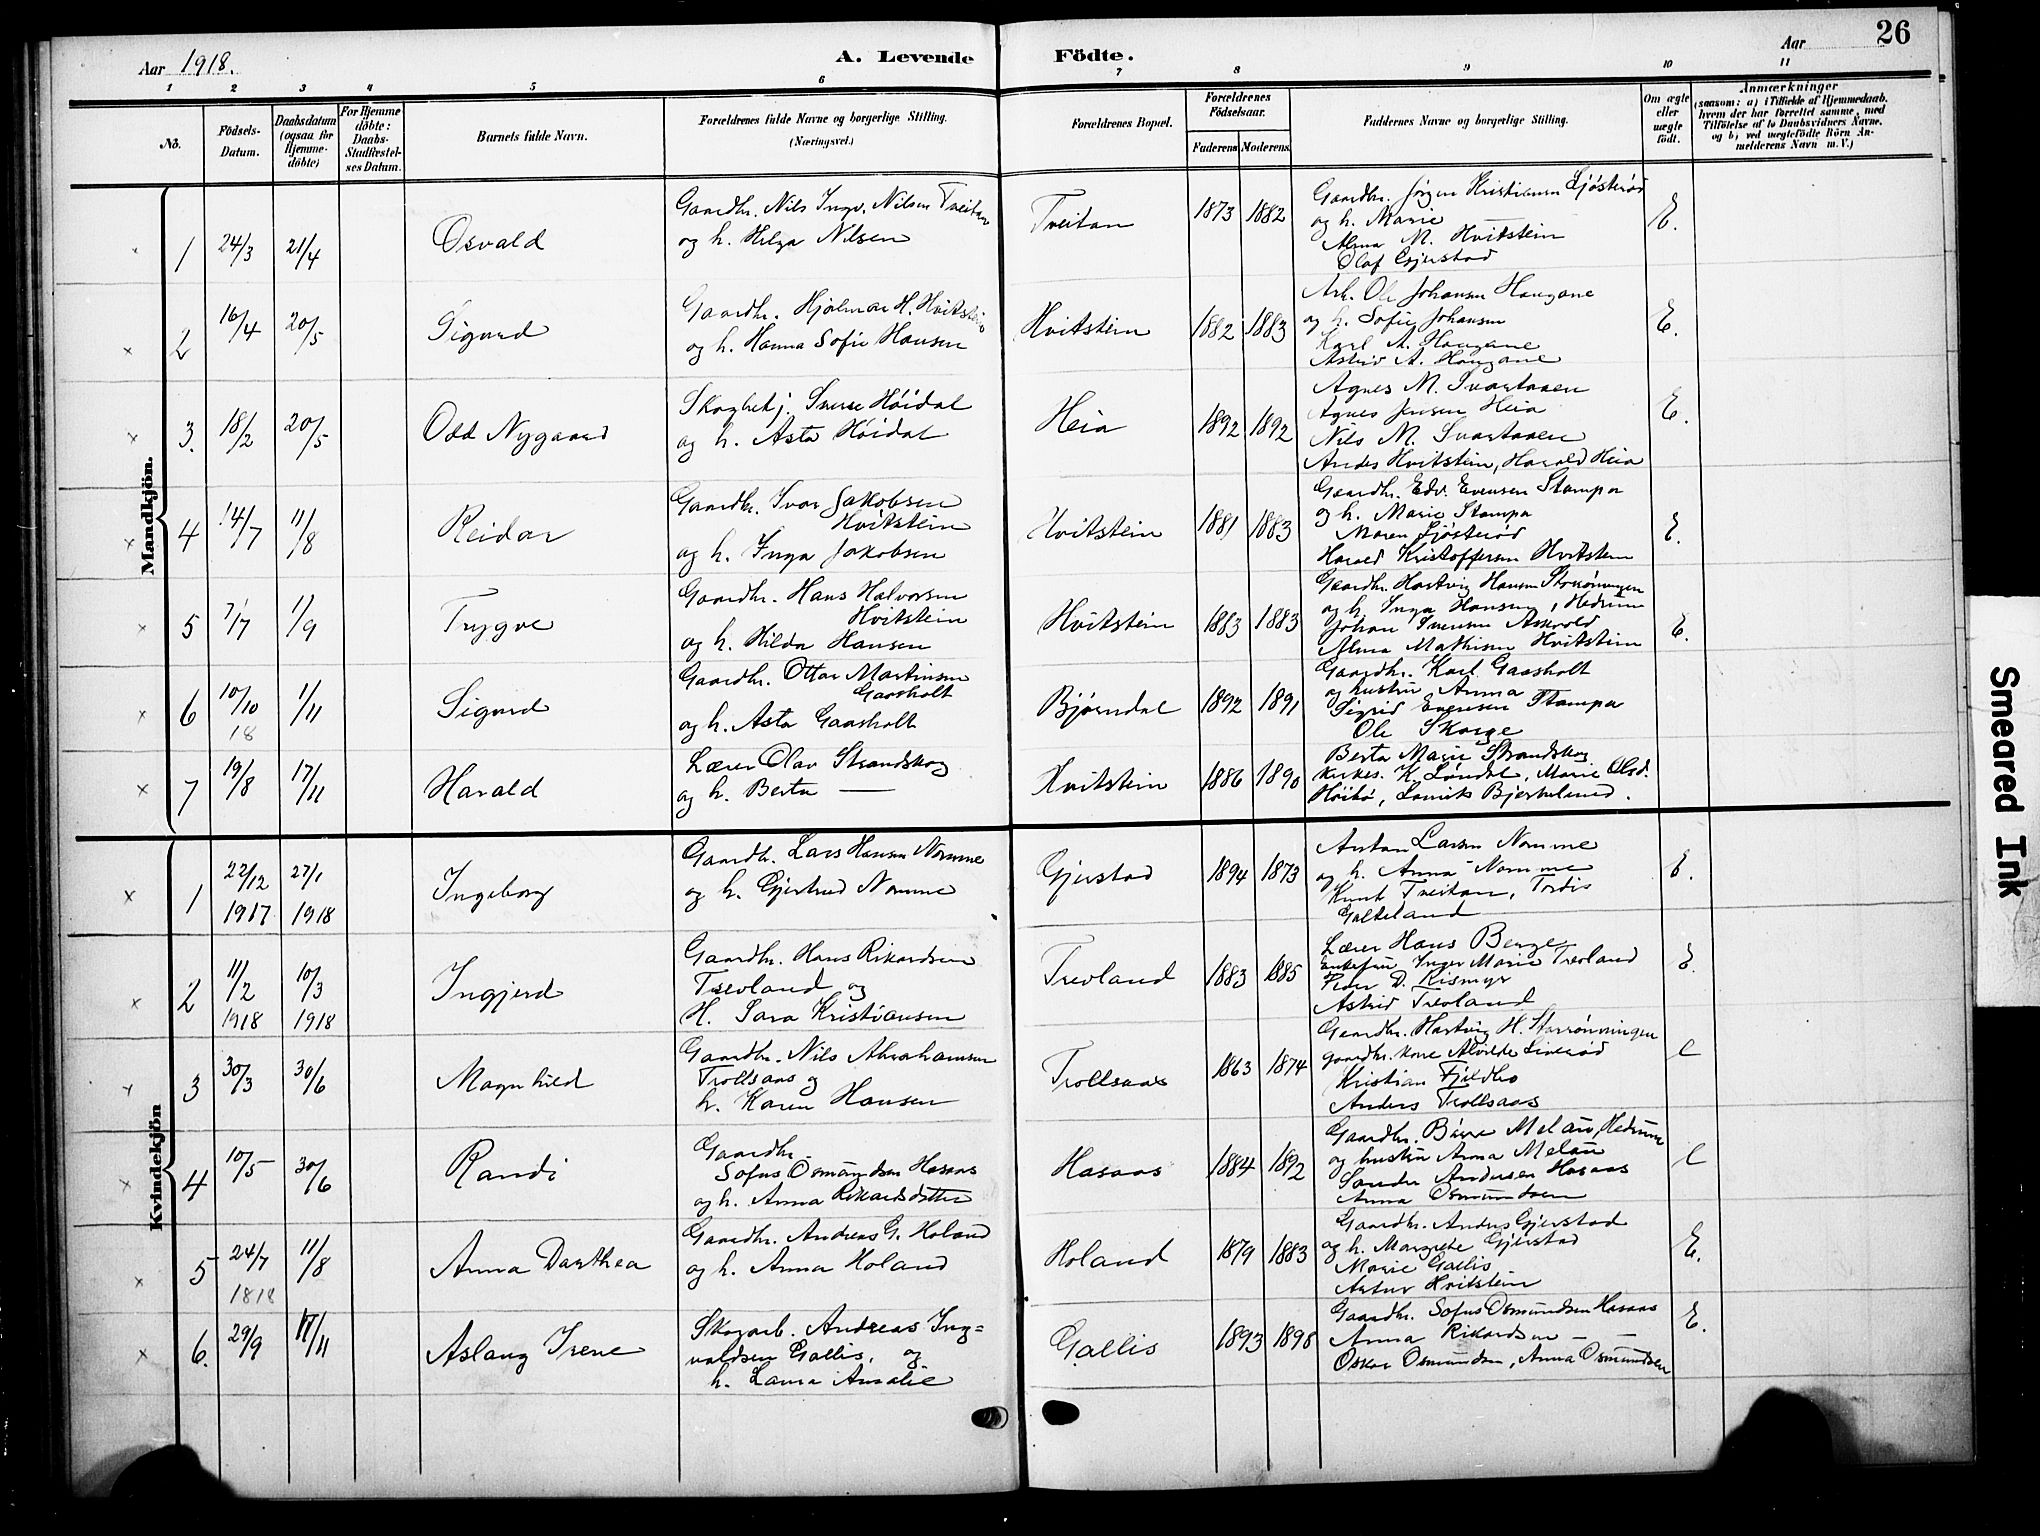 Aar 1918.
A. Levende Födte.
Aar
26
1 2 3 4 5 6 7 8 9 10 11
No.
Födsels-Datum.
Daabsdatum (ogsaa för Hjemme-döbte)
For Hjemme döbte: Daabs-Stadfæstel-ses Datum.
Barnets fulde Navn.
Forældrenes fulde Navne og borgerlige Stilling.
(Næringsvei.)
Forældrenes Bopæl.
Forældrenes Födselsaar.
Faderens Moderens
Faddernes Navne og borgerlige Stilling.
Om ægte eller uægte födt.
Anmærkninger
(saasom: a) i Tilfælde af Hjemmedaab,
hvem der har forrettet samme, med
Tilföielse af to Daabsvidners Navne,
og b) ved uægtefödte Börn An-
melderens Navn m.V.)
Mandkjön.
1 24/3 21/4 Osvald
Gaardbr. Nils Ingv. Nilsen Treitan
og h. Helga Nilsen
Treitan 1873 1882
Gaardbr. Jörgen Kristiansen Ljösteröd
og h. Marie
Alma M. Hvitstein
Olaf Gjerstad
E.
2 16/4 20/5 Sigurd
Gaardbr. Hjalmar H. Hvitstein
og h. Hanna Sofie Hansen
Hvitstein 1882 1883
Arb. Ole Johansen Haugane
og h. Sofie Johansen
Karl A. Haugane
Astrid A. Haugane
E.
3. 18/2 20/5 Odd Nygaard
Skogbetj. Sverre Höidal
og h. Asta Höidal
Heia 1892 1892
Agnes M. Svartaaen
Agnes Jensen Heia
Nils M. Svartaaen
Anders Hvitstein, Harald Heia
E.
4 14/7 11/8 Reidar
Gaardbr. Ivar Jakobsen
Hvitstein
og h. Inga Jakobsen
Hvitstein 1881 1883
Gaardbr. Edv. Evensen Stampa
og h. Marie Stampa
Maren Ljösteröd
Harald Kristoffersen Hvitstein
E.
5 7/7 1/9 Trygve
Gaardbr. Hans Halvorsen
Hvitstein
og h. Hilda Hansen
Hvitstein 1883 1883
Gaardbr. Hartvig Hansen Storrönningen
og h. Inga Hansen, Hedrum
Johan Svensen Askvold
Alma Mathisen Hvitstein
E.
6 10/10 18 1/11 Sigurd
Gaardbr. Ottar Martinsen
Gaasholt
og h. Asta Gaasholt
Bjørndal 1892 1891
Gaardbr. Karl Gaasholt
og hustru Anna
Sigrid Evensen Stampa
Ole Skorge
7 19/8 17/11 Harald
Lærer Olav Strandskog
og h. Berta —
Hvitstein 1886 1890
Berta Marie Strandskog
Kirkes. K. Løndal, Marie Olsd.
Höibö, Laurits Bjerkelund.
Kvindekjön
1 22/12 1917 27/1 1918 Ingeborg
Gaardbr. Lars Hansen Nomme
og h. Gjertrud Nomme
Gjerstad 1894 1873
Anton Larsen Nomme
og h. Anna Nomme
Knut Treitan, Tordis
Galteland
E.
2 11/2 1918 10/3 1918 Ingjerd
Gaardbr. Hans Rikardsen
Trevland og
H. Sara Kristiansen
Trevland 1883 1885
Lærer Hans Berge
Enkefru Inger Marie Trevland
Peder D. Rismyr
Astrid Trevland
E.
3 30/3 30/6 Magnhild
Gaardbr. Nils Abrahamsen
Trollsaas og
h. Karen Hansen
Trollsaas 1863 1874
Gaardbr. Hartvig H. Storrønningen
gaardbr. kone Alvilde Liveröd
Kristian Fjeldbo
Anders Trollsaas
E
4 10/5 30/6 Randi
Gaardbr.
Sofus Osmundsen Hasaas
og h. Anna Rikardsdatter
Hasaas 1884 1892
Gaardbr. Börre Melau, Hedrum
og hustru Anna Melau
Sander Andersen Hasaas
Anna Osmundsen
E
5 24/7 1818 11/8 Anna Darthea
Gaardbr. Andreas G. Holand
og h. Anna Holand
Holand 1879 1883
Gaardbr. Anders Gjerstad
og h. Margrete Gjerstad
Marie Gallis
Artur Hvitstein
E.
6. 29/9 17/11 Aslaug Irene
Skogarb. Andreas Ing=
valdsen Gallis, og
h. Laura Amalie
Gallis 1893 1898
Gaardbr. Sofus Osmundsen Hasaas
Anna Rikardsen — —
Oskar Osmundsen, Anna Osmundsen
E.
Smeared Ink